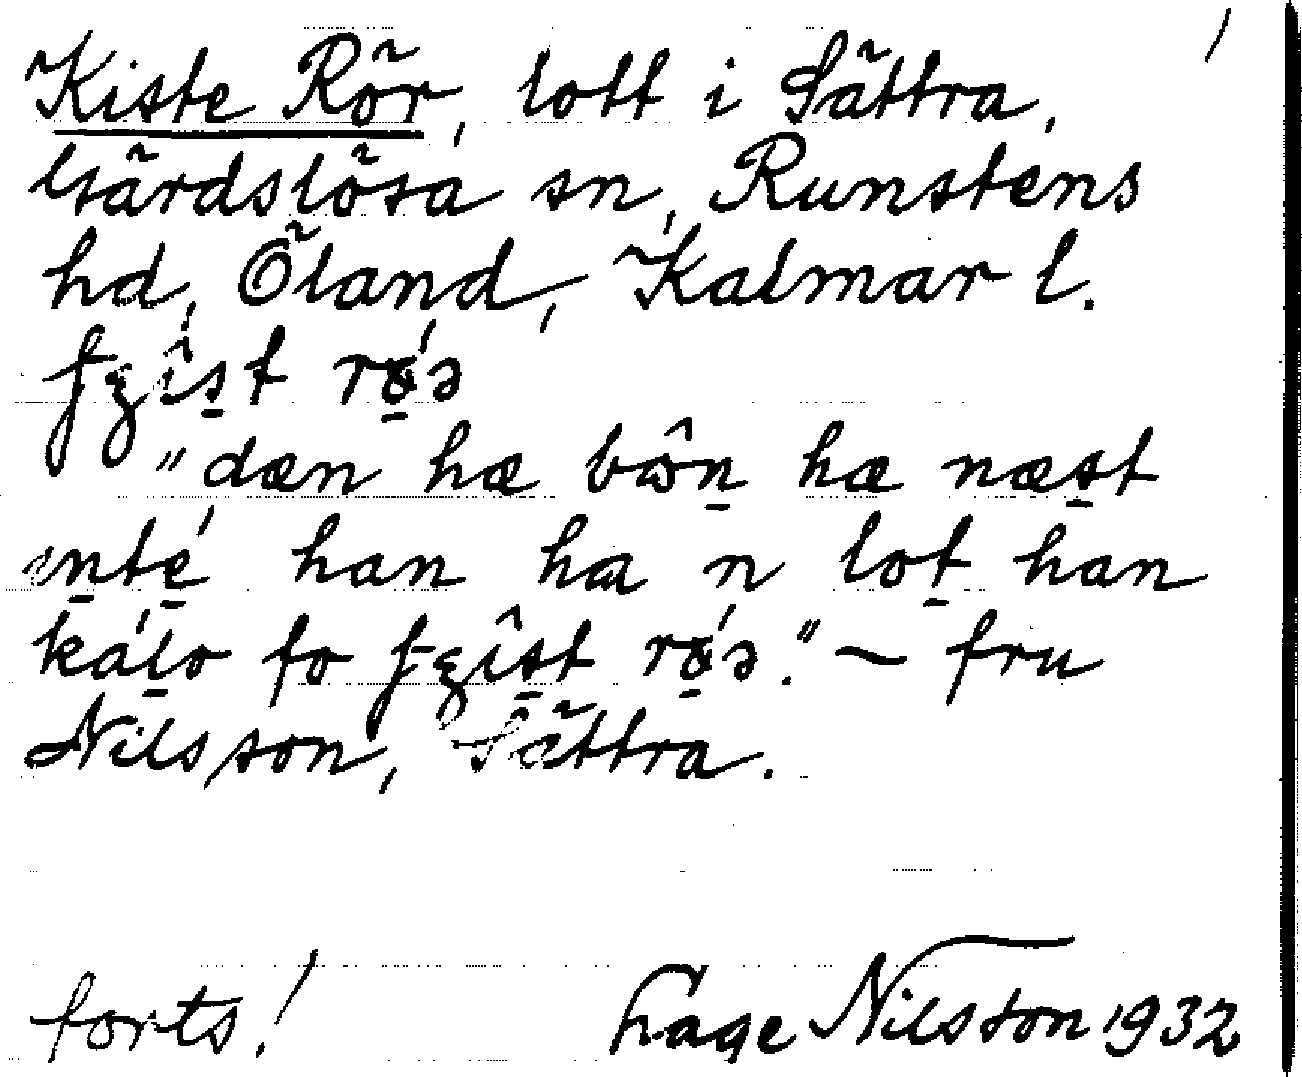 Kiste Rör, lott i Sättra,
Gärdslösa sn, Runstens
hd, Öland, Kalmar l.
rö́ə
"dæn hæ bôn hæ næst
inté han ha n lot han
kálo fo rö́ə." – fru
Nilsson, Sättra.
forts! Nilsson 1932